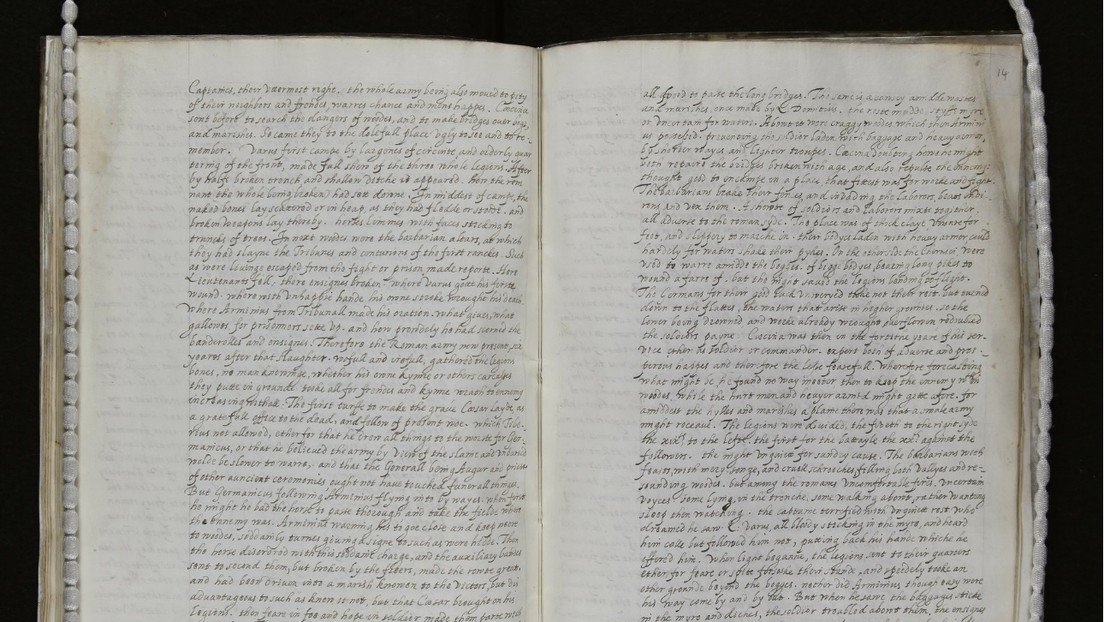 Captaines, their uttermost right. the whole army being also moved to pity
of their neighbors and frendes warres chance and mens happes. Cæcina
sent before to search the dangers of wodes, and to make bridges over bogs,
and marishes. So came they to the dolefull place ugly to see and to re-
member. Varus first campe by largenes of circuite and orderly quar
tering of the front, made full shew of the three whole legions. After
by halfe broken trench and shallow ditche it appeared. how the rem
nant the whole being broken had sett downe. In middest of campe, the
naked bones lay scattered or in heap, as they had fledde or stode. and
broken weapons lay thereby. horses limmes with faces sticking to
trunckes of trees. In next wodes were the barbarian altars, at which
they had slayne the Tribunes and centurions of the first ranckes. Such
as were livinge escaped from the fight or prison made reporte. Here
Lieutenants fell, there ensignes broken where Varus gott his firste
wound. where with unhappie hande his owne stroke wrought his death
where Arminius from Tribunall made his oration. what gives, what
gallowes for prisonners sette up. and how prowdely he had scorned the
banderolles and ensignes. Therefore the Roman army now present, six
yeares after that slaughter. wofull and wrofull, gathered the legions
bones, no man knowinge, whether his owne kynne or others carcases
they putte in grounde. tooke all for frendes and kynne wrath to ennemy
increasing withall. The first turfe to make the grave Cæsar layde, as
a gratefull office to the dead. and fellow of present woe. which Tibe-
rius not allowed, ether for that he drew all things to the worste for Ger-
manicus, or that he bileeved the army by viewe of the slaine and unburied
wolde be slower to warre, and that the Generall being Augur and priest
of other auncient ceremonies ought not have touched funerall things.
But Germanicus following Arminius flying into by wayes. when first
he might he bad the horse to passe thorough and take the fieldes where
the ennemy was. Arminius warning his to goe close and keep nere
to wodes, soddainly turnes giving a signe to such as were hidde. Then
the horse disordred with this soddaine charge, and the auxiliary bandes
sent to second them, but broken by the fleers, made the route great.
and had been driven into a marish knowen to the victors, but dis
advantageous to such as knew it not, but that Cæsar brought on his
Legions. then feare in foe and hope in soldier made them parte with
14
all speed to passe the long bridges. The sence is a cawsey amidde wastes
and marishes once made by L Domitius. the reste muddie, styffe myre
or uncertain for waters. About it were craggy wodes which then Armini
us possessed. preventing the soldier laden with baggage and heavy armor,
by shorter wayes and lighter troupes. Cæcina doubting how he might
both repaire the bridges broken with age, and also repulse the ennemy:
thought good to encampe in a place, that fittest was for worke and fight.
The barbarians brake their forces, and invading the Laborers, beats envi-
rons and vex them. A showte of soldiers and Laborers mixt together,
all adverse to the roman syde. The place was of thick claye unsure for
foot, and slippery to marche in. their bodyes laden with heavy armor, could
hardely for waters shake their pykes. On the other side the Cherusci were
used to warre amidde the bogges. of bigge bodyes, bearing long pikes to
wound afarre of. but the night saved the legions bending to flight.
The Germans for their good luck unweryed toke not their rest. but turned
down to the flattes, the waters that arise in higher growndes. so the
lower being drowned and worke already wrought overflowen redoubled
the soldiers payne. Cæcina was then in the fortieth yeare of his ser-
vice ether as soldier or commander. expert both of adverse and pros-
perous happes and therfore the lesse fearefull. Wherefore forecasting
what might be, he found no way meeter then to keep the ennemy in the
wodes, while the hurt men and heavyer armed might gette afore. for
amiddest the hylles and marishes a plaine there was that a weake army
might receave. The legions were devided, the fifth to the right syde
the xxith to the lefte. the first for the battayle the xxth against the
followers. the night unquiet for sundry cause. The barbarians with
feasts, with mery songe, and cruell scrieches, filling both vallyes and re-
sounding wodes. but among the romans uncomfortable fires. uncertain
voyces some lying in the trenche, some walking about, rather wanting
sleep then watching. the captaine terrified with unquiet rest who
dreamed he saw Q. Varus all bloody sticking in the myre, and heard
him calle but followed him not, putting back his hande which he
offred him. When light beganne, the legions sent to their quarters
ether for feare or spite forsake their stande. and speedely tooke an
other grounde beyond the bogges. nether did Arminius though easy were
his way come by and by out. But when he sawe the baggages sticke
in the myre and diches, the soldier troubled about them, the ensignes